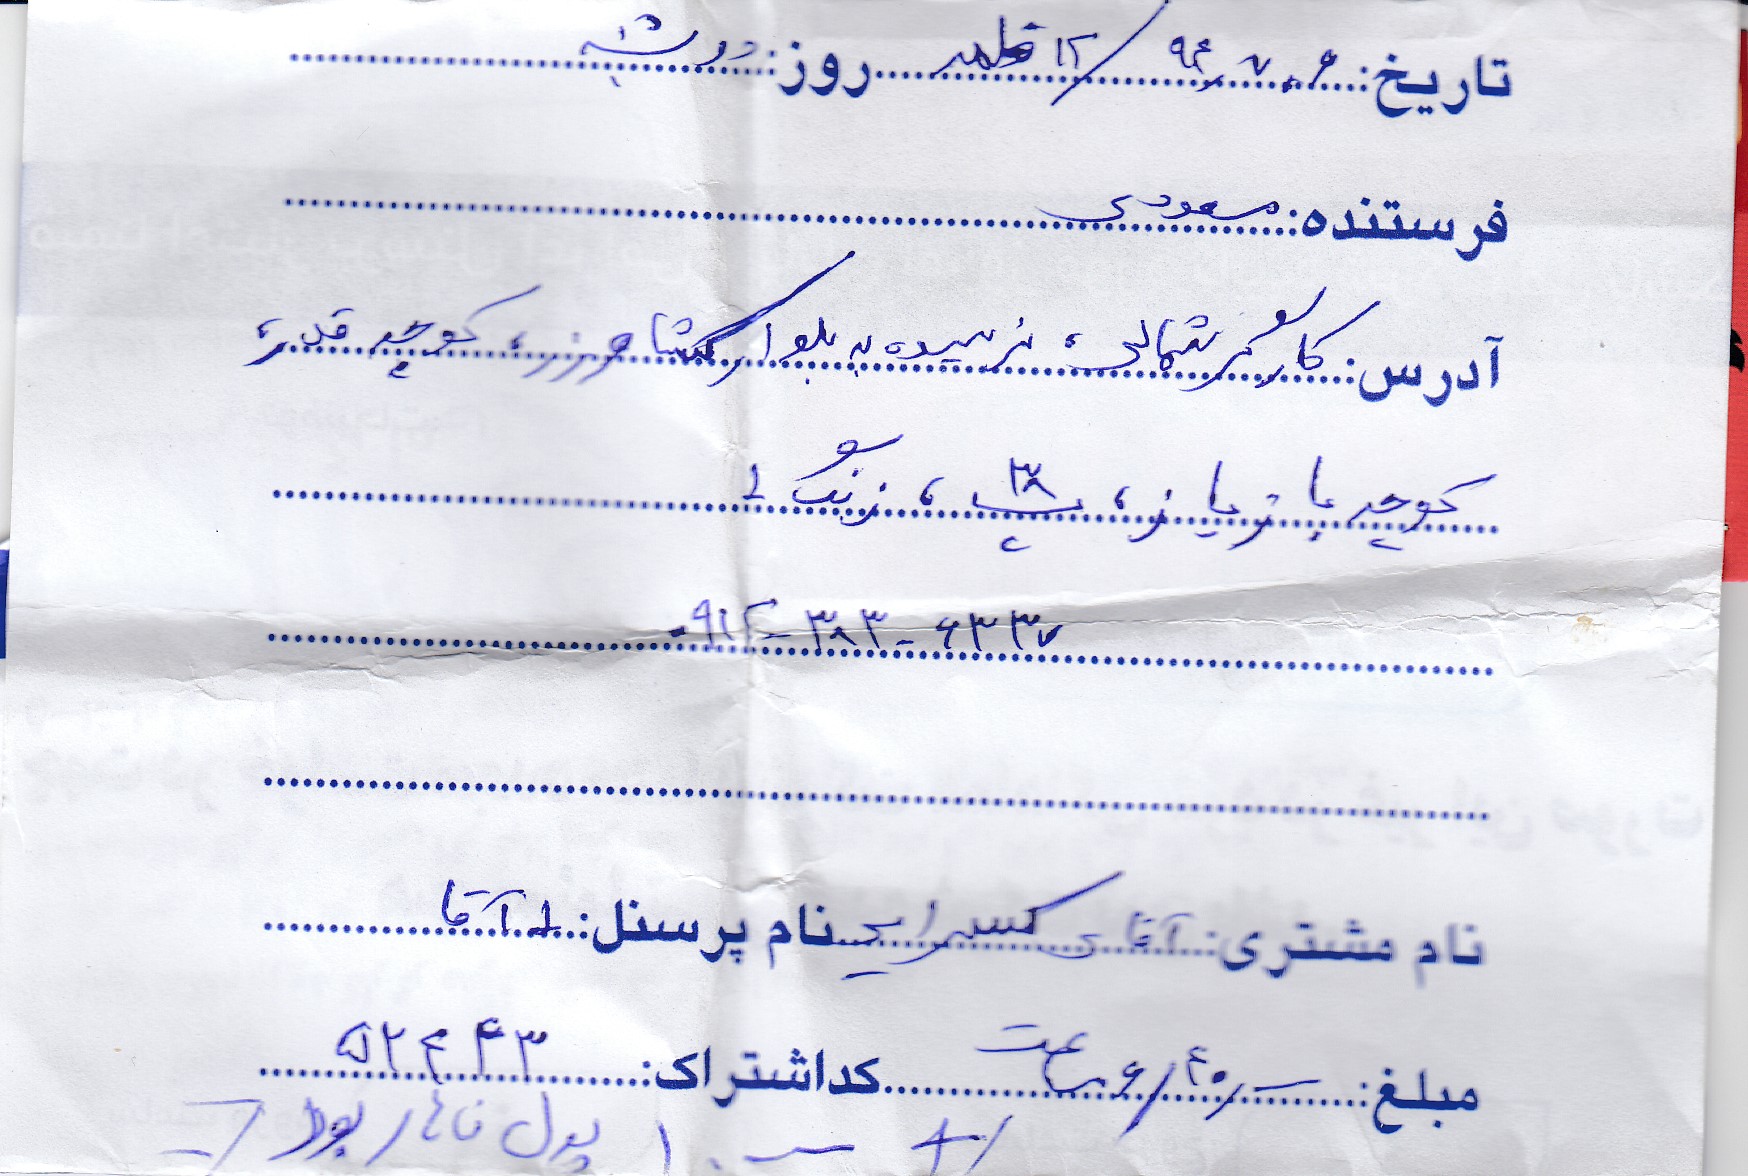 تاریخ: ۹۴٫۷٫۰۶ / ۱۲ ظهر روز: دوشنبه
فرستنده: مسعودی
آدرس: کارگر شمالی، نرسیده به بلوار کشاورز، کوچه قدر،
کوچه پا تریا نر، پ ۳۸، زنگ ۱
۰۹۱۲-۳۸۳-۶۳۳۷
نام مشتری: آقای کسرایی نام پرسنل: ۱ آقا
مبلغ: کداشتراک: ۵۲۴۴۳
پول ناهار بود